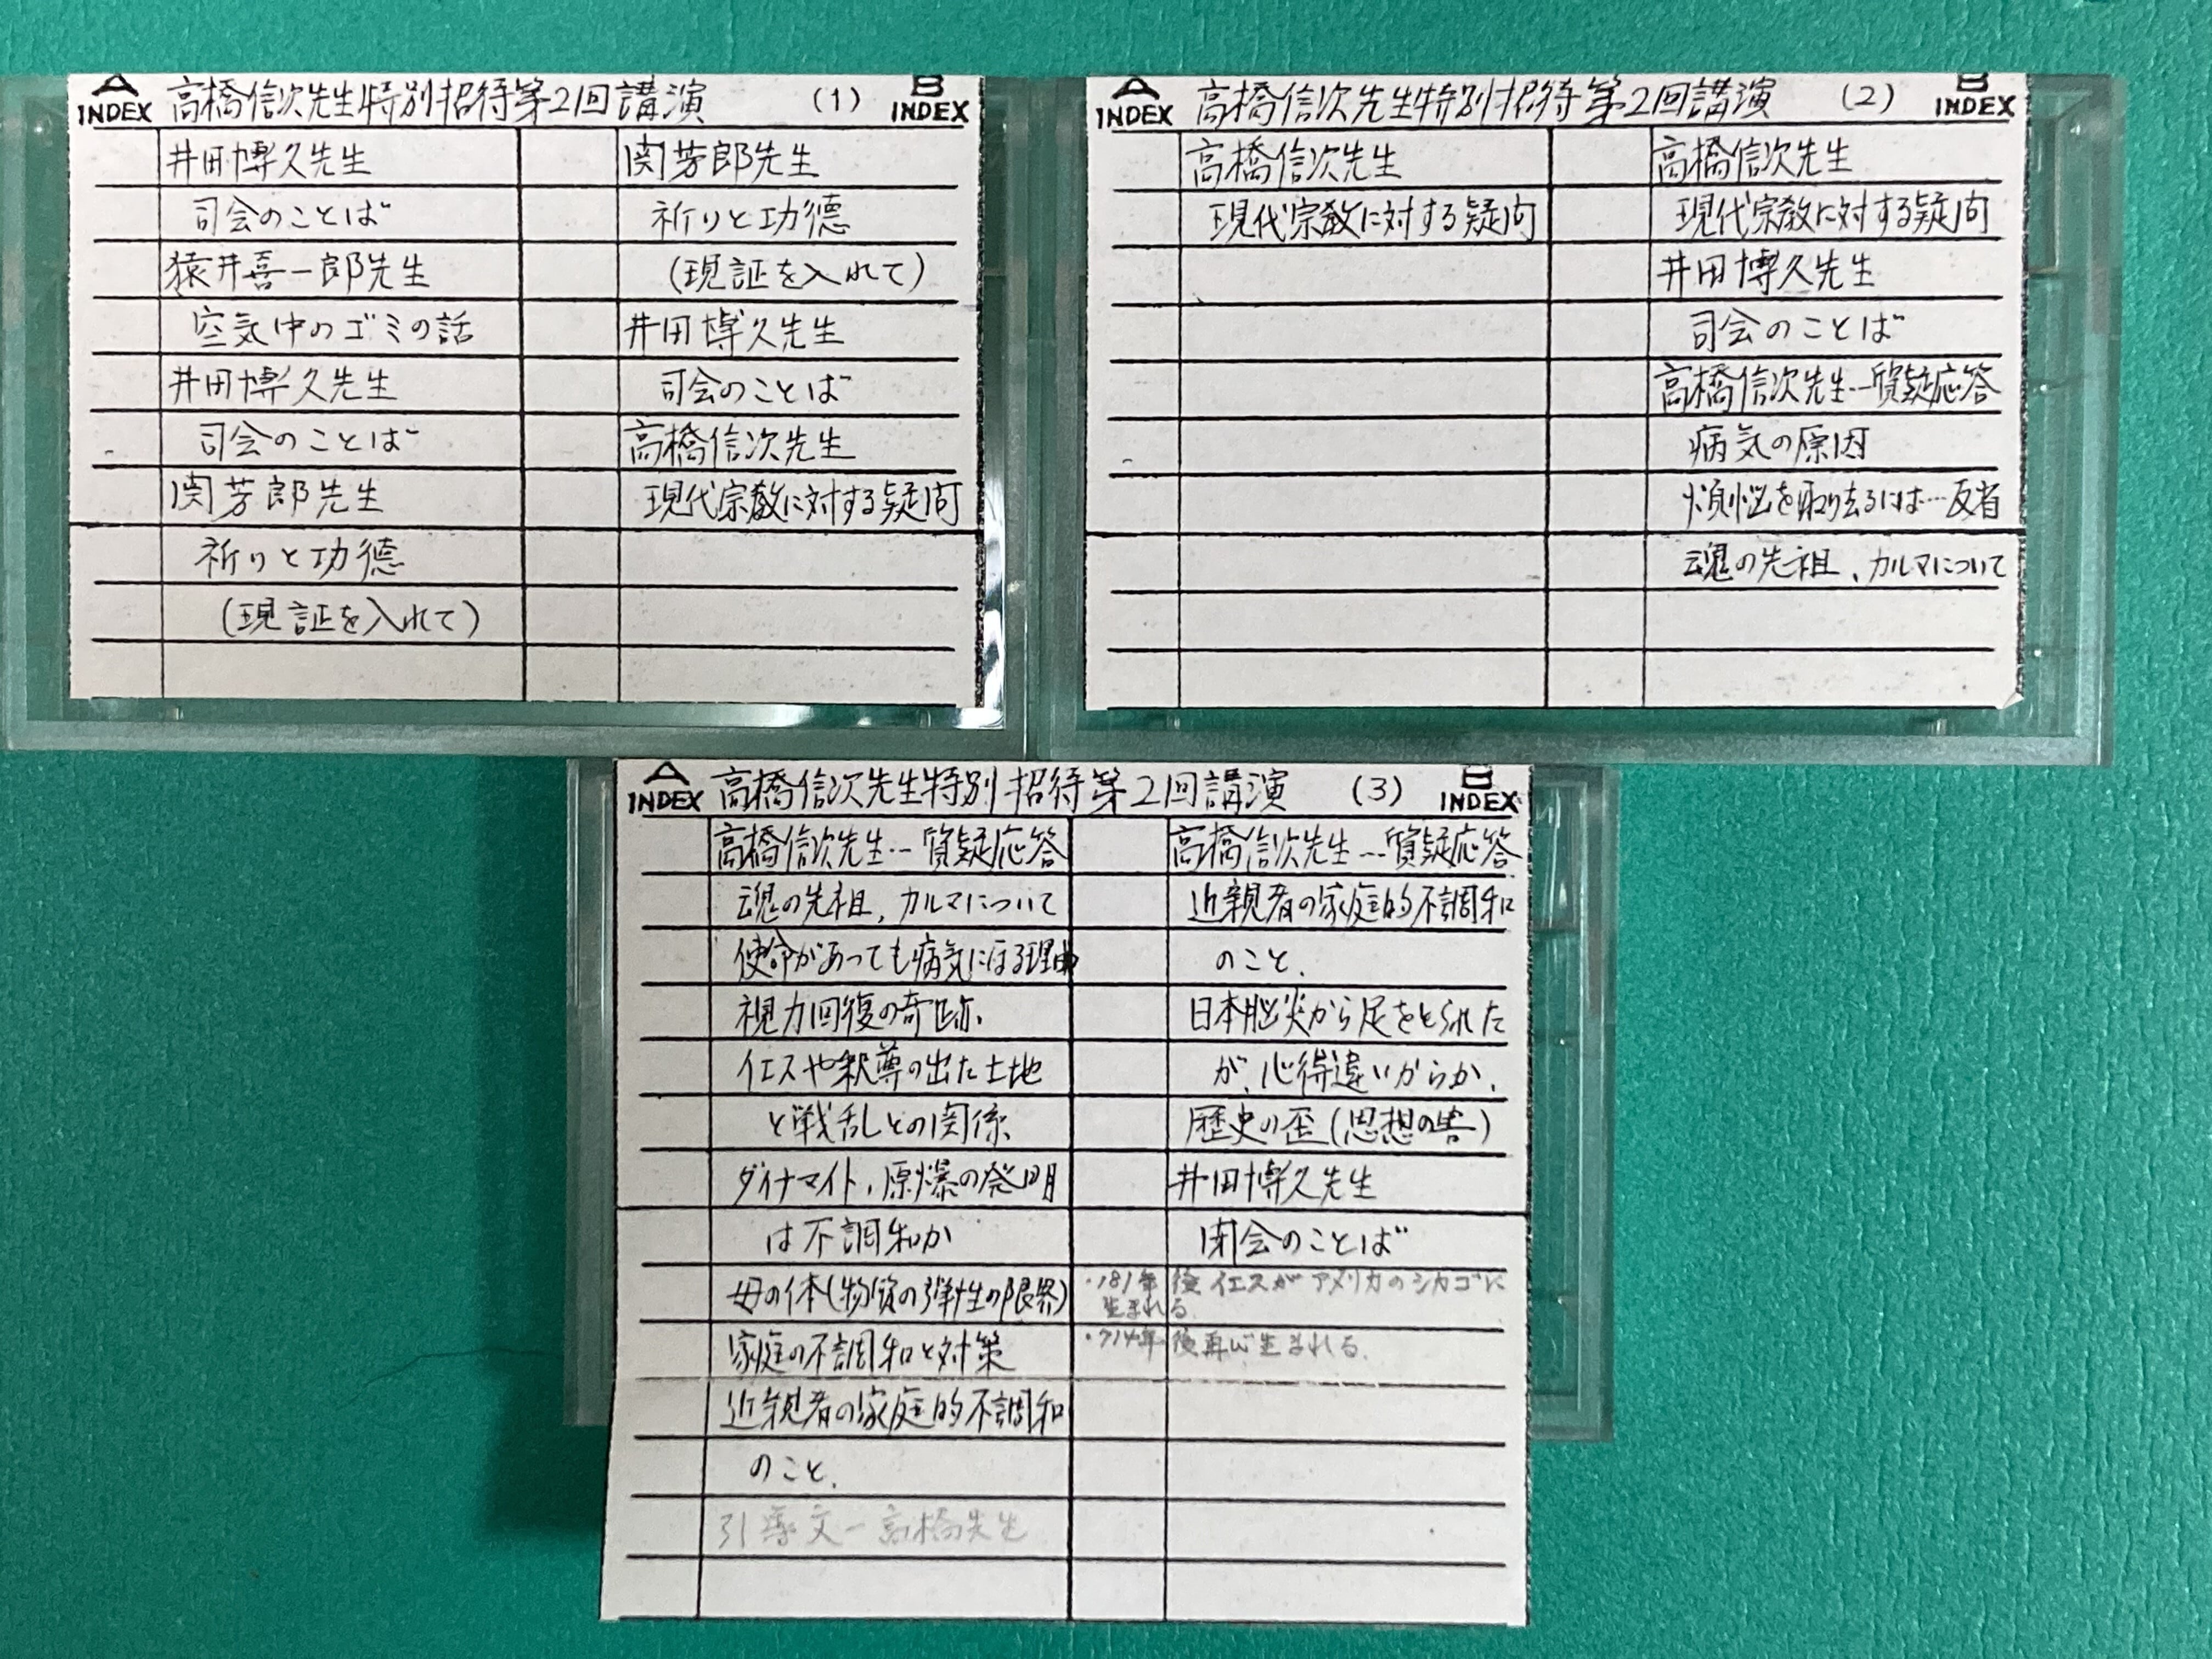 A INDEX 高橋信次先生特別招待第2回講演 (1) B INDEX
井田博久先生
司会のことば
猿井喜一郎先生
空気中のゴミの話
井田博久先生
司会のことば
関芳郎先生
祈りと功徳
(現証を入れて)
関芳郎先生
祈りと功徳
(現証を入れて)
井田博久先生
司会のことば
高橋信次先生
現代宗教に対する疑問
A INDEX 高橋信次先生特別招待第2回講演 (2) B INDEX
高橋信次先生
現代宗教に対する疑問
高橋信次先生
現代宗教に対する疑問
井田博久先生
司会のことば
高橋信次先生…質疑応答
病気の原因
煩悩を取り去るには…反省
魂の先祖、カルマについて
A INDEX 高橋信次先生特別招待第2回講演 (3) B INDEX
高橋信次先生…質疑応答
魂の先祖、カルマについて
使命があっても病気になる理由
視力回復の奇跡、
イエスや釈尊の出た土地
と戦乱との関係、
ダイナマイト、原爆の発明
は不調和か
母の体(物質の弾性の限界)
家庭の不調和と対策
近親者の家庭的不調和
のこと、
引導文ー高橋先生
高橋信次先生…質疑応答
近親者の家庭的不調和
のこと、
日本脳炎から足をとられた
が、心得違いからか、
歴史の歪(思想の害)
井田博久先生
閉会のことば
・181年後イエスがアメリカのシカゴに
生まれる
・714年後再び生まれる。